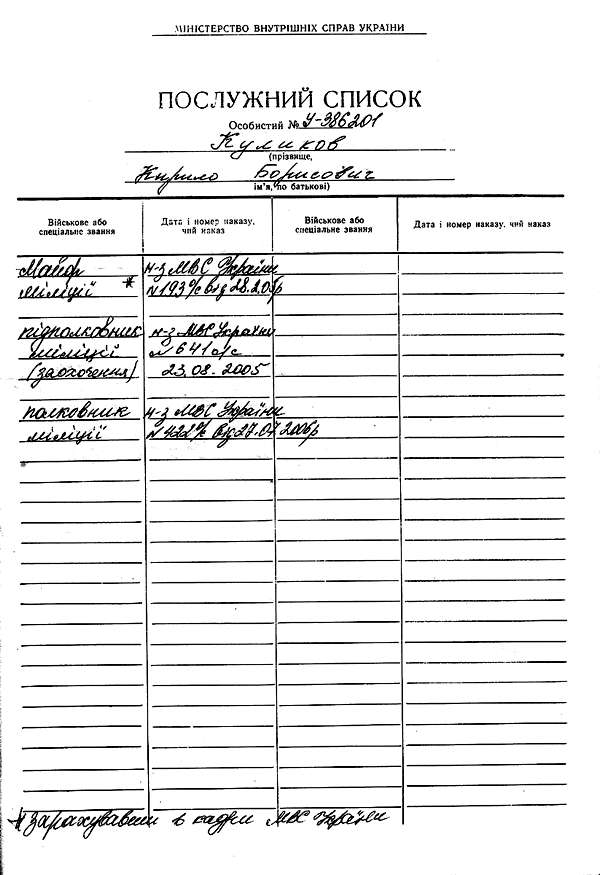 МІНІСТЕРСТВО ВНУТРІШНІХ СПРАВ УКРАЇНИ
ПОСЛУЖНИЙ СПИСОК
Особистий № У-386201
Куликов
(прізвище,
Кирило Борисович
ім'я, по батькові)
Військове або спеціальне звання
Дата і номер наказу, чий наказ
Військове або спеціальне звання
Дата і номер наказу, чий наказ
Майор н-з МВС України
міліції * № 193 о/с від 28.2.05р
підполковник н-з МВС України
міліції № 641 о/с
(заохочення) 23.08.2005
полковник н-з МВС України
міліції № 422 о/с від 27.07.2006р
* Зарахувавши в кадри МВС України